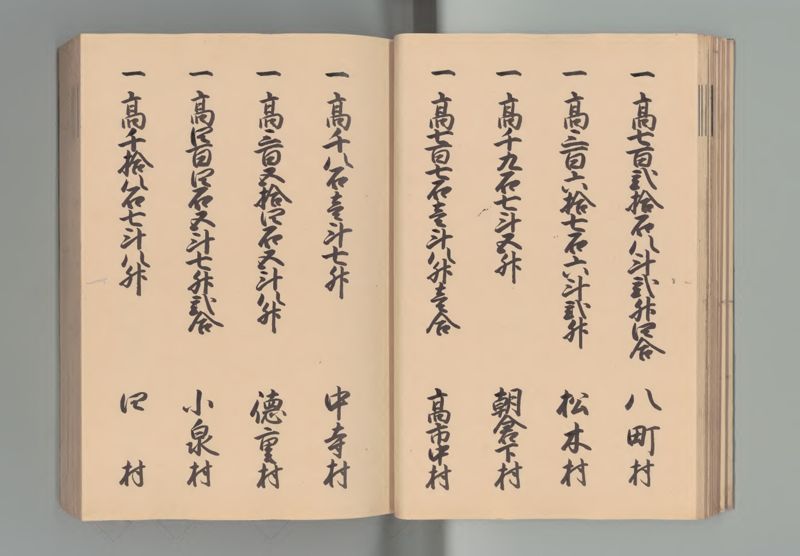 一 高七百弐拾石八斗弐升四合 八町村
一 高三百六拾七石六斗弐升 松木村
一 高千九石七斗五升 朝倉下村
一 高七百七石壱斗八升壱合 高市中村
一 高千八石壱斗七升 中寺村
一 高三百五拾四石五斗八升 徳重村
一 高四百四石五斗七升弐合 小泉村
一 高千拾八石七斗八升 四村